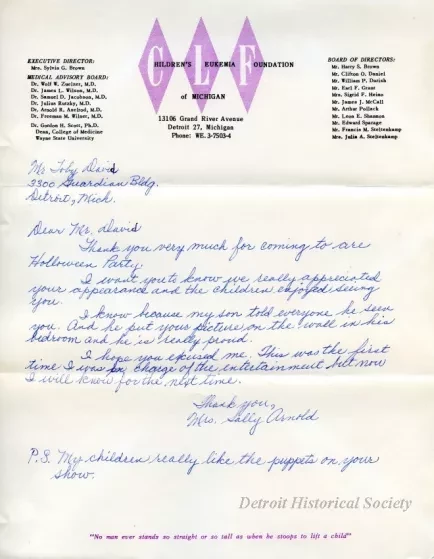 CHILDREN'S LEUKEMIA FOUNDATION
of MICHIGAN
13106 Grand River Avenue
Detroit 27, Michigan
Phone: WE. 3-7503-4
EXECUTIVE DIRECTOR:
Mrs. Sylvia G. Brown
MEDICAL ADVISORY BOARD:
Dr. Wolf W. Zuelzer, M.D.
Dr. James L. Wilson, M.D.
Dr. Samuel D. Jacobson, M.D.
Dr. Julius Rutzky, M.D.
Dr. Arnold R. Axelrod, M.D.
Dr. Freeman M. Wilner, M.D.
Dr. Gordon H. Scott, Ph.D.
Dean, College of Medicine
Wayne State University
BOARD OF DIRECTORS:
Mr. Harry S. Brown
Mr. Clifton O. Daniel
Mr. William P. Dotish
Mr. Earl F. Grant
Mrs. Sigrid F. Heino
Mr. James J. McCall
Mr. Arthur Pollock
Mr. Leon E. Shannon
Mr. Edward Sparage
Mr. Francis M. Steltenkamp
Mrs. Julia A. Steltenkamp
Mr Toby David
3300 Guardian Bldg.
Detroit, Mich.
Dear Mr. David
Thank you very much for coming to are
Holloween Party.
I want you to know we really appreciated
your appearance and the children enjoyed seeing
you.
I know because my son told everyone he seen
you. And he put your picture on the wall in his
bedroom and he is really proud.
I hope you excused me. This was the first
time I was in charge of the entertainment but now
I will know for the next time.
Thank you,
Mrs. Sally Arnold
P.S. My children really like the puppets on your
show.
Detroit Historical Society
"No man ever stands so straight or so tall as when he stoops to lift a child"